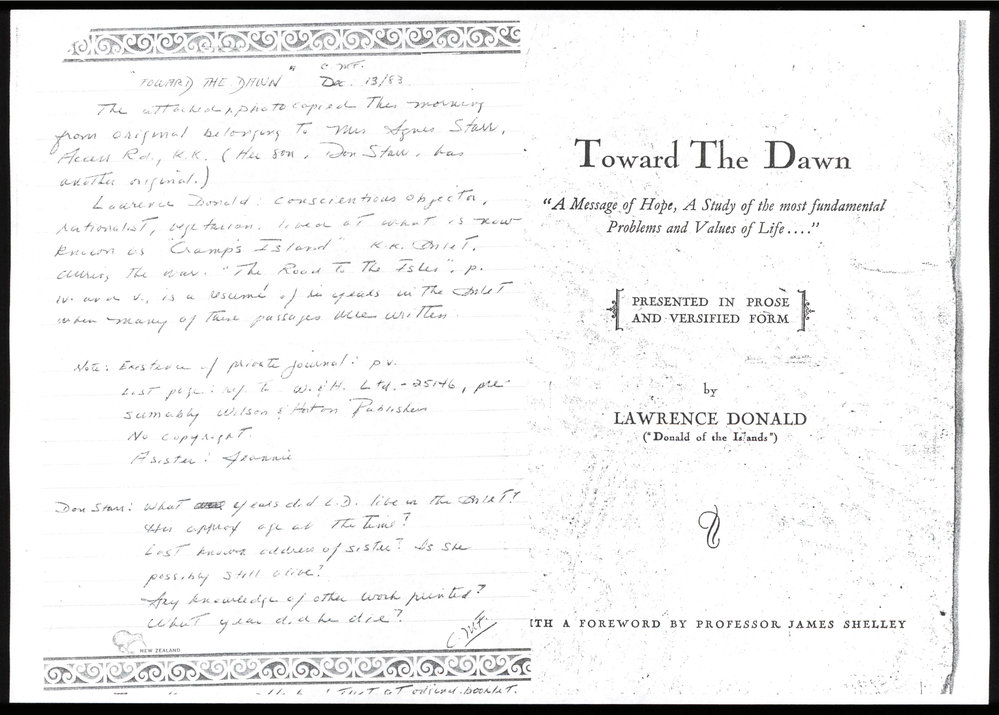 "TOWARD THE DAWN"
C. MF.
Dec. 13/83
The attached photocopied this morning
from original belonging to Mrs Agnes Starr,
Access Rd., K.K. (Her son, Don Starr, has
another original.)
Lawrence Donald: conscientious objector,
rationalist, vegetarian. lived at what is now
known as "Cramp's Island" K.K. Inlet,
during the war. "The Road to the Isles", p.
iv. and v., is a resumé of six years in the Inlet
when many of these passages were written.
Note: Existence of private journal: p v.
Last page: ref. to W. & H. Ltd. - 25146, pre-
sumably Wilson & Horton Publishers
No copyright.
A sister: Jeannie
Don Starr: What years did L.D. live in the Inlet?
His approx age at the time?
Last known address of sister? Is she
possibly still alive?
Any knowledge of other work printed?
What year did he die?
C. MF.
NEW ZEALAND
that at original booklet.
Toward The Dawn
"A Message of Hope, A Study of the most fundamental
Problems and Values of Life...."
PRESENTED IN PROSE
AND VERSIFIED FORM
by
LAWRENCE DONALD
("Donald of the Islands")
ITH A FOREWORD BY PROFESSOR JAMES SHELLEY